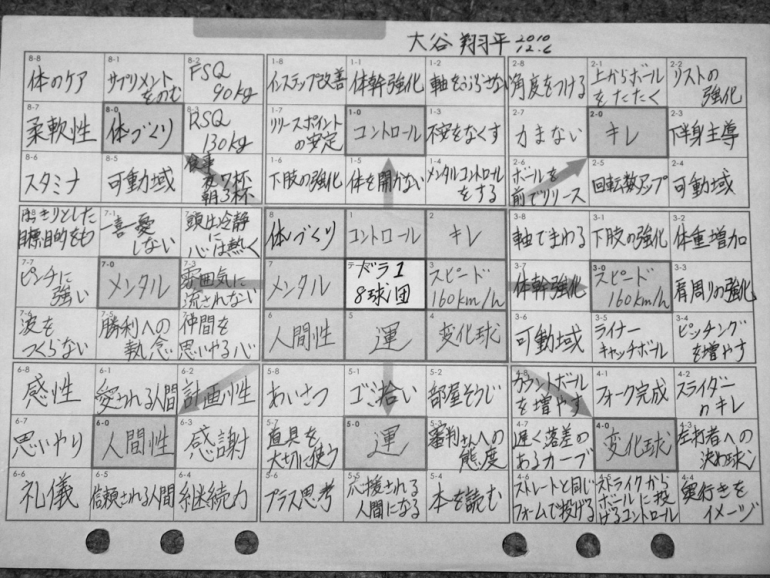 大谷 翔平 2010
12.6
8-8
体のケア
8-1
サプリメント
をのむ
8-2
FSQ
90kg
8-7
柔軟性
8-0
体づくり
RSQ
130kg
8-6
スタミナ
8-5
可動域
食事
夜7杯
朝3杯
1-8
インステップ改善
1-1
体幹強化
1-2
軸をぶらさない
1-7
リリースポイント
の安定
1-0
コントロール
1-3
不安をなくす
1-6
下肢の強化
1-5
体を開かない
1-4
メンタルコントロール
をする
2-8
角度をつける
2-1
上からボール
をたたく
2-2
リストの
強化
2-7
力まない
2-0
キレ
2-3
下半身主導
2-6
ボールを
前でリリース
2-5
回転数アップ
2-4
可動域
はっきりとした
目標目的をもつ
7-1
一喜一憂
しない
頭は冷静に
心は熱く
7-7
ピンチに
強い
7-0
メンタル
7-3
雰囲気に
流されない
7-6
波を
つくらない
7-5
勝利への
執念
7-4
仲間を
思いやる心
8
体づくり
1
コントロール
2
キレ
7
メンタル
ドラ1
8球団
3
スピード
160km/h
6
人間性
5
運
4
変化球
3-8
軸でまわる
3-1
下肢の強化
3-2
体重増加
3-7
体幹強化
3-0
スピード
160km/h
3-3
肩周りの強化
3-6
可動域
3-5
ライナー
キャッチボール
3-4
ピッチング
を増やす
6-8
感性
6-1
愛される人間
6-2
計画性
6-7
思いやり
6-0
人間性
6-3
感謝
6-6
礼儀
6-5
信頼される人間
6-4
継続力
5-8
あいさつ
5-1
ゴミ拾い
5-2
部屋そうじ
5-7
道具を
大切に使う
5-0
運
5-3
審判さんへの
態度
5-6
プラス思考
5-5
応援される
人間になる
5-4
本を読む
4-8
カウントボール
を増やす
4-1
フォーク完成
4-2
スライダー
のキレ
4-7
遅く落差の
あるカーブ
4-0
変化球
4-3
左打者への
決め球
4-6
ストレートと同じ
フォームで投げる
ストライクから
ボールに投
げるコントロール
4-4
奥行きを
イメージ